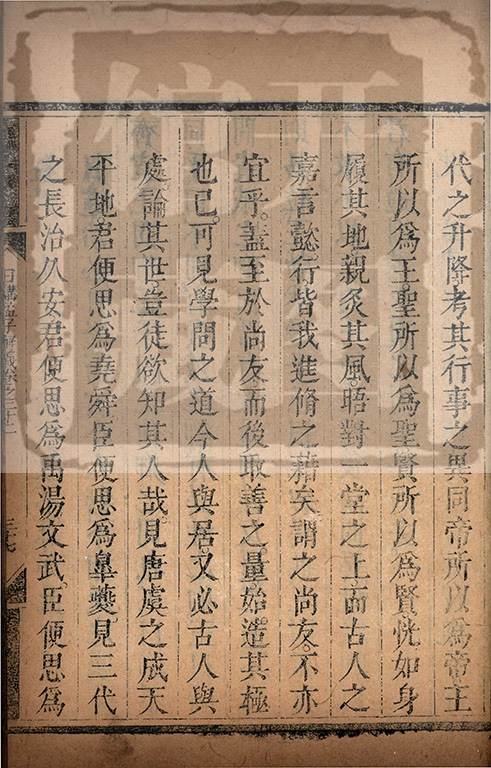 代之升降考其行事之異同帝所以為帝王
所以為王聖所以為聖賢所以為賢恍如身
履其地親炙其風晤對一堂之上而古人之
嘉言懿行皆我進脩之藉矣謂之尚友不亦
宜乎蓋至於尚友而後取善之量始造其極
也已可見學問之道今人與居又必古人與
處論其世豈徒欲知其人哉見唐虞之成天
平地君便思為堯舜臣便思為臯夔見三代
之長治久安君便思為禹湯文武臣便思為
日講孟子解義卷之二十二